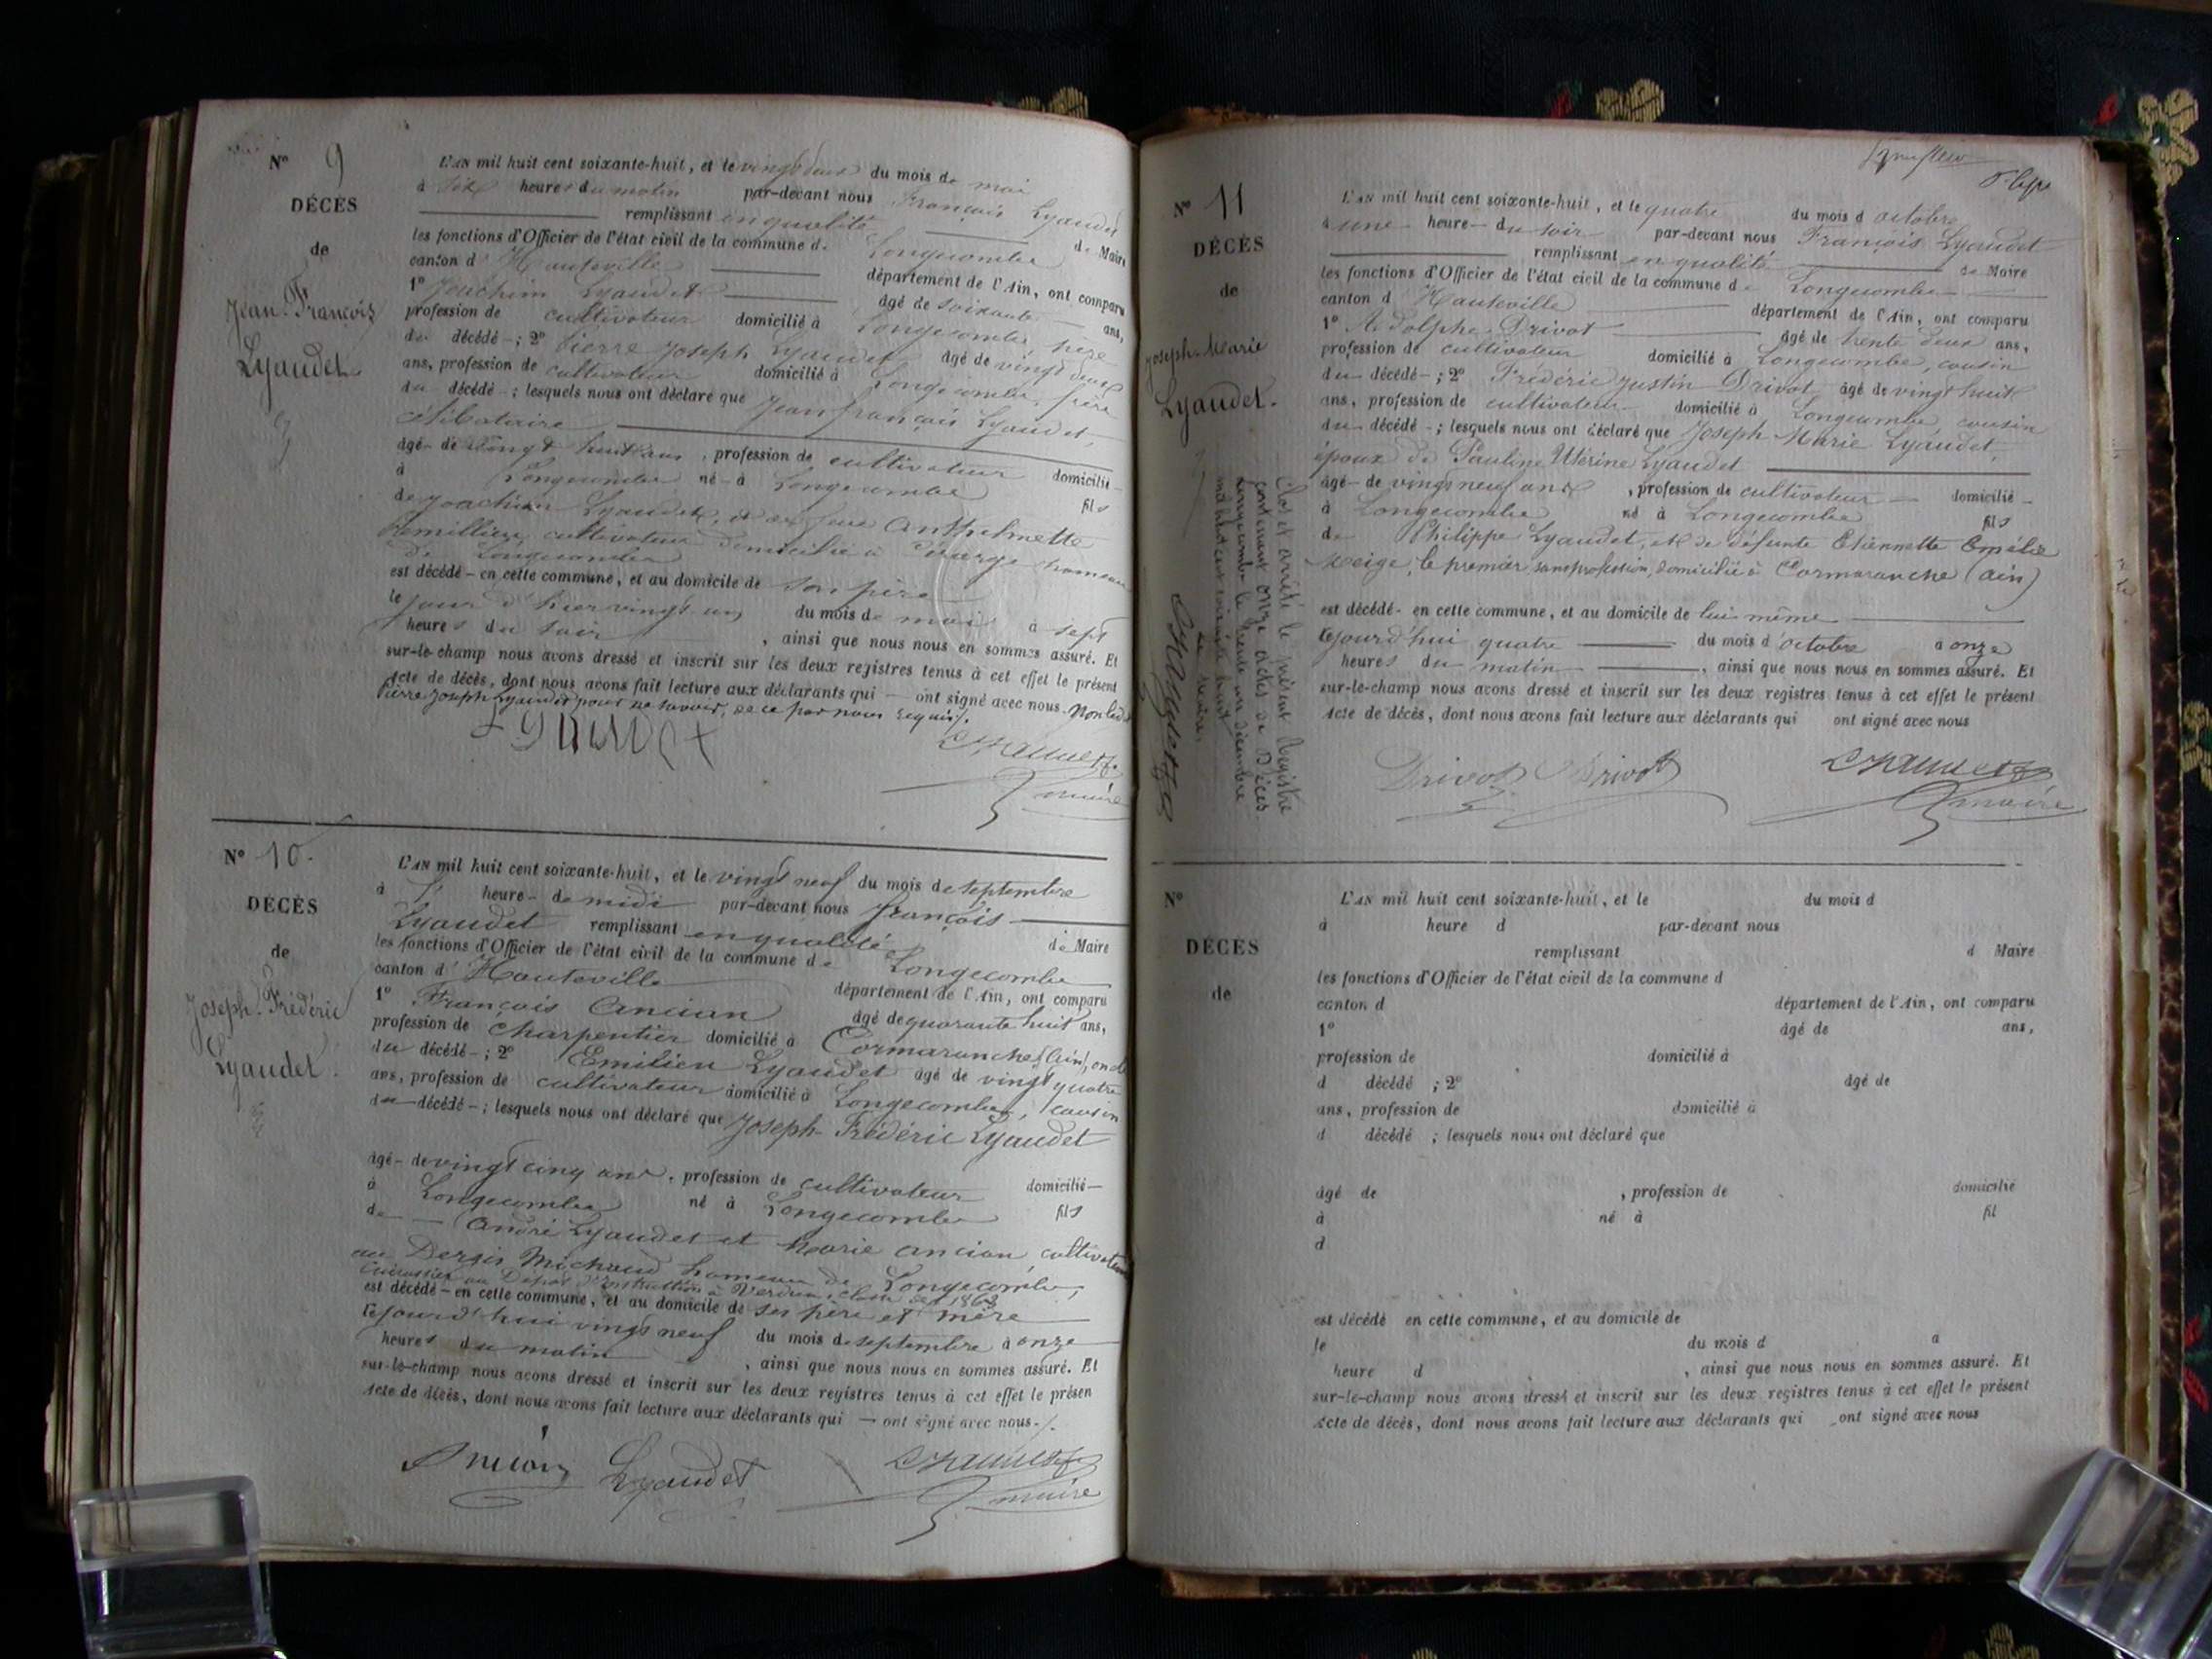 N° 9
DÉCÈS
de
Jean-François
Lyaudet
L'AN mil huit cent soixante-huit, et le vingt deux du mois de mai
à six heures du matin par-devant nous François Lyaudet
remplissant en qualité de Maire
les fonctions d'Officier de l'état civil de la commune de Longecombe
canton d'Hauteville département de l'Ain, ont comparu
1° Joachim Lyaudet âgé de soixante ans,
profession de cultivateur domicilié à Longecombe, père
du décédé ; 2° Pierre Joseph Lyaudet âgé de vingt deux
ans, profession de cultivateur domicilié à Longecombe, frère
du décédé ; lesquels nous ont déclaré que Jean François Lyaudet,
célibataire
âgé de vingt huit ans, profession de cultivateur domicilié
à Longecombe né à Longecombe fils
de Joachim Lyaudet, et de feue Anthelmette
cultivateur domicilié à hameau
de Longecombe
est décédé en cette commune, et au domicile de son père
le jour d'hier vingt un du mois de mai à sept
heures du soir, ainsi que nous nous en sommes assuré. Et
sur-le-champ nous avons dressé et inscrit sur les deux registres tenus à cet effet le présent
Acte de décès, dont nous avons fait lecture aux déclarants qui ont signé avec nous. Non led.
Pierre Joseph Lyaudet pour ne savoir, de ce par nous requis/.
Lyaudet
Lyaudet
maire
N° 10
DÉCÈS
de
Joseph-Frédéric
Lyaudet.
L'AN mil huit cent soixante-huit, et le vingt neuf du mois de septembre
à heure de midi par-devant nous François
Lyaudet remplissant en qualité de Maire
les fonctions d'Officier de l'état civil de la commune de Longecombe
canton d'Hauteville département de l'Ain, ont comparu
1° François Ancian âgé de quarante huit ans,
profession de Charpentier domicilié à Cormaranche (Ain), oncle
du décédé ; 2° Emilien Lyaudet âgé de vingt quatre
ans, profession de cultivateur domicilié à Longecombe, cousin
du décédé ; lesquels nous ont déclaré que Joseph-Frédéric Lyaudet
âgé de vingt cinq ans, profession de cultivateur domicilié
à Longecombe né à Longecombe fils
de André Lyaudet et Marie Ancian cultivateurs
au Dergis Michaud hameau de Longecombe,
Cuirassier au Dépôt d'instruction à Verdun, classe de 1863
est décédé en cette commune, et au domicile de ses père et mère
cejourd'hui vingt neuf du mois de septembre à onze
heures du matin, ainsi que nous nous en sommes assuré. Et
sur-le-champ nous avons dressé et inscrit sur les deux registres tenus à cet effet le présen
Acte de décès, dont nous avons fait lecture aux déclarants qui ont signé avec nous./.
Ancian Lyaudet Lyaudet
maire
N° 11
DÉCÈS
de
Joseph-Marie
Lyaudet.
L'AN mil huit cent soixante-huit, et le quatre du mois d'octobre
à une heure du soir par-devant nous François Lyaudet
remplissant en qualité de Maire
les fonctions d'Officier de l'état civil de la commune de Longecombe
canton d'Hauteville département de l'Ain, ont comparu
1° Adolphe Drivot âgé de trente deux ans,
profession de cultivateur domicilié à Longecombe, cousin
du décédé ; 2° Frédéric Justin Drivot, âgé de vingt huit
ans, profession de cultivateur domicilié à Longecombe cousin
du décédé ; lesquels nous ont déclaré que Joseph Marie Lyaudet,
époux de Pauline Utérine Lyaudet
âgé de vingt neuf ans, profession de cultivateur domicilié
à Longecombe né à Longecombe fils
de Philippe Lyaudet, et de défunte Etiennette Emélie
le premier sans profession, domicilié à Cormaranche (Ain)
est décédé en cette commune, et au domicile de lui même
cejourd'hui quatre du mois d'octobre à onze
heures du matin, ainsi que nous nous en sommes assuré. Et
sur-le-champ nous avons dressé et inscrit sur les deux registres tenus à cet effet le présent
Acte de décès, dont nous avons fait lecture aux déclarants qui ont signé avec nous
Drivot Drivot Lyaudet
maire
Clos et arrêté le présent Registre
contenant onze actes de Décès.
Longecombe le trente un décembre
mil huit cent soixante huit
Le maire,
Lyaudet
N°
DÉCÈS
de
L'AN mil huit cent soixante-huit, et le du mois d
à heure d par-devant nous
remplissant d Maire
les fonctions d'Officier de l'état civil de la commune d
canton d département de l'Ain, ont comparu
1° âgé de ans,
profession de domicilié à
d décédé ; 2° âgé de
ans, profession de domicilié à
d décédé ; lesquels nous ont déclaré que
âgé de , profession de domicilié
à né à fil
d
est décédé en cette commune, et au domicile de
le du mois d à
heure d , ainsi que nous nous en sommes assuré. Et
sur-le-champ nous avons dressé et inscrit sur les deux registres tenus à cet effet le présent
Acte de décès, dont nous avons fait lecture aux déclarants qui ont signé avec nous